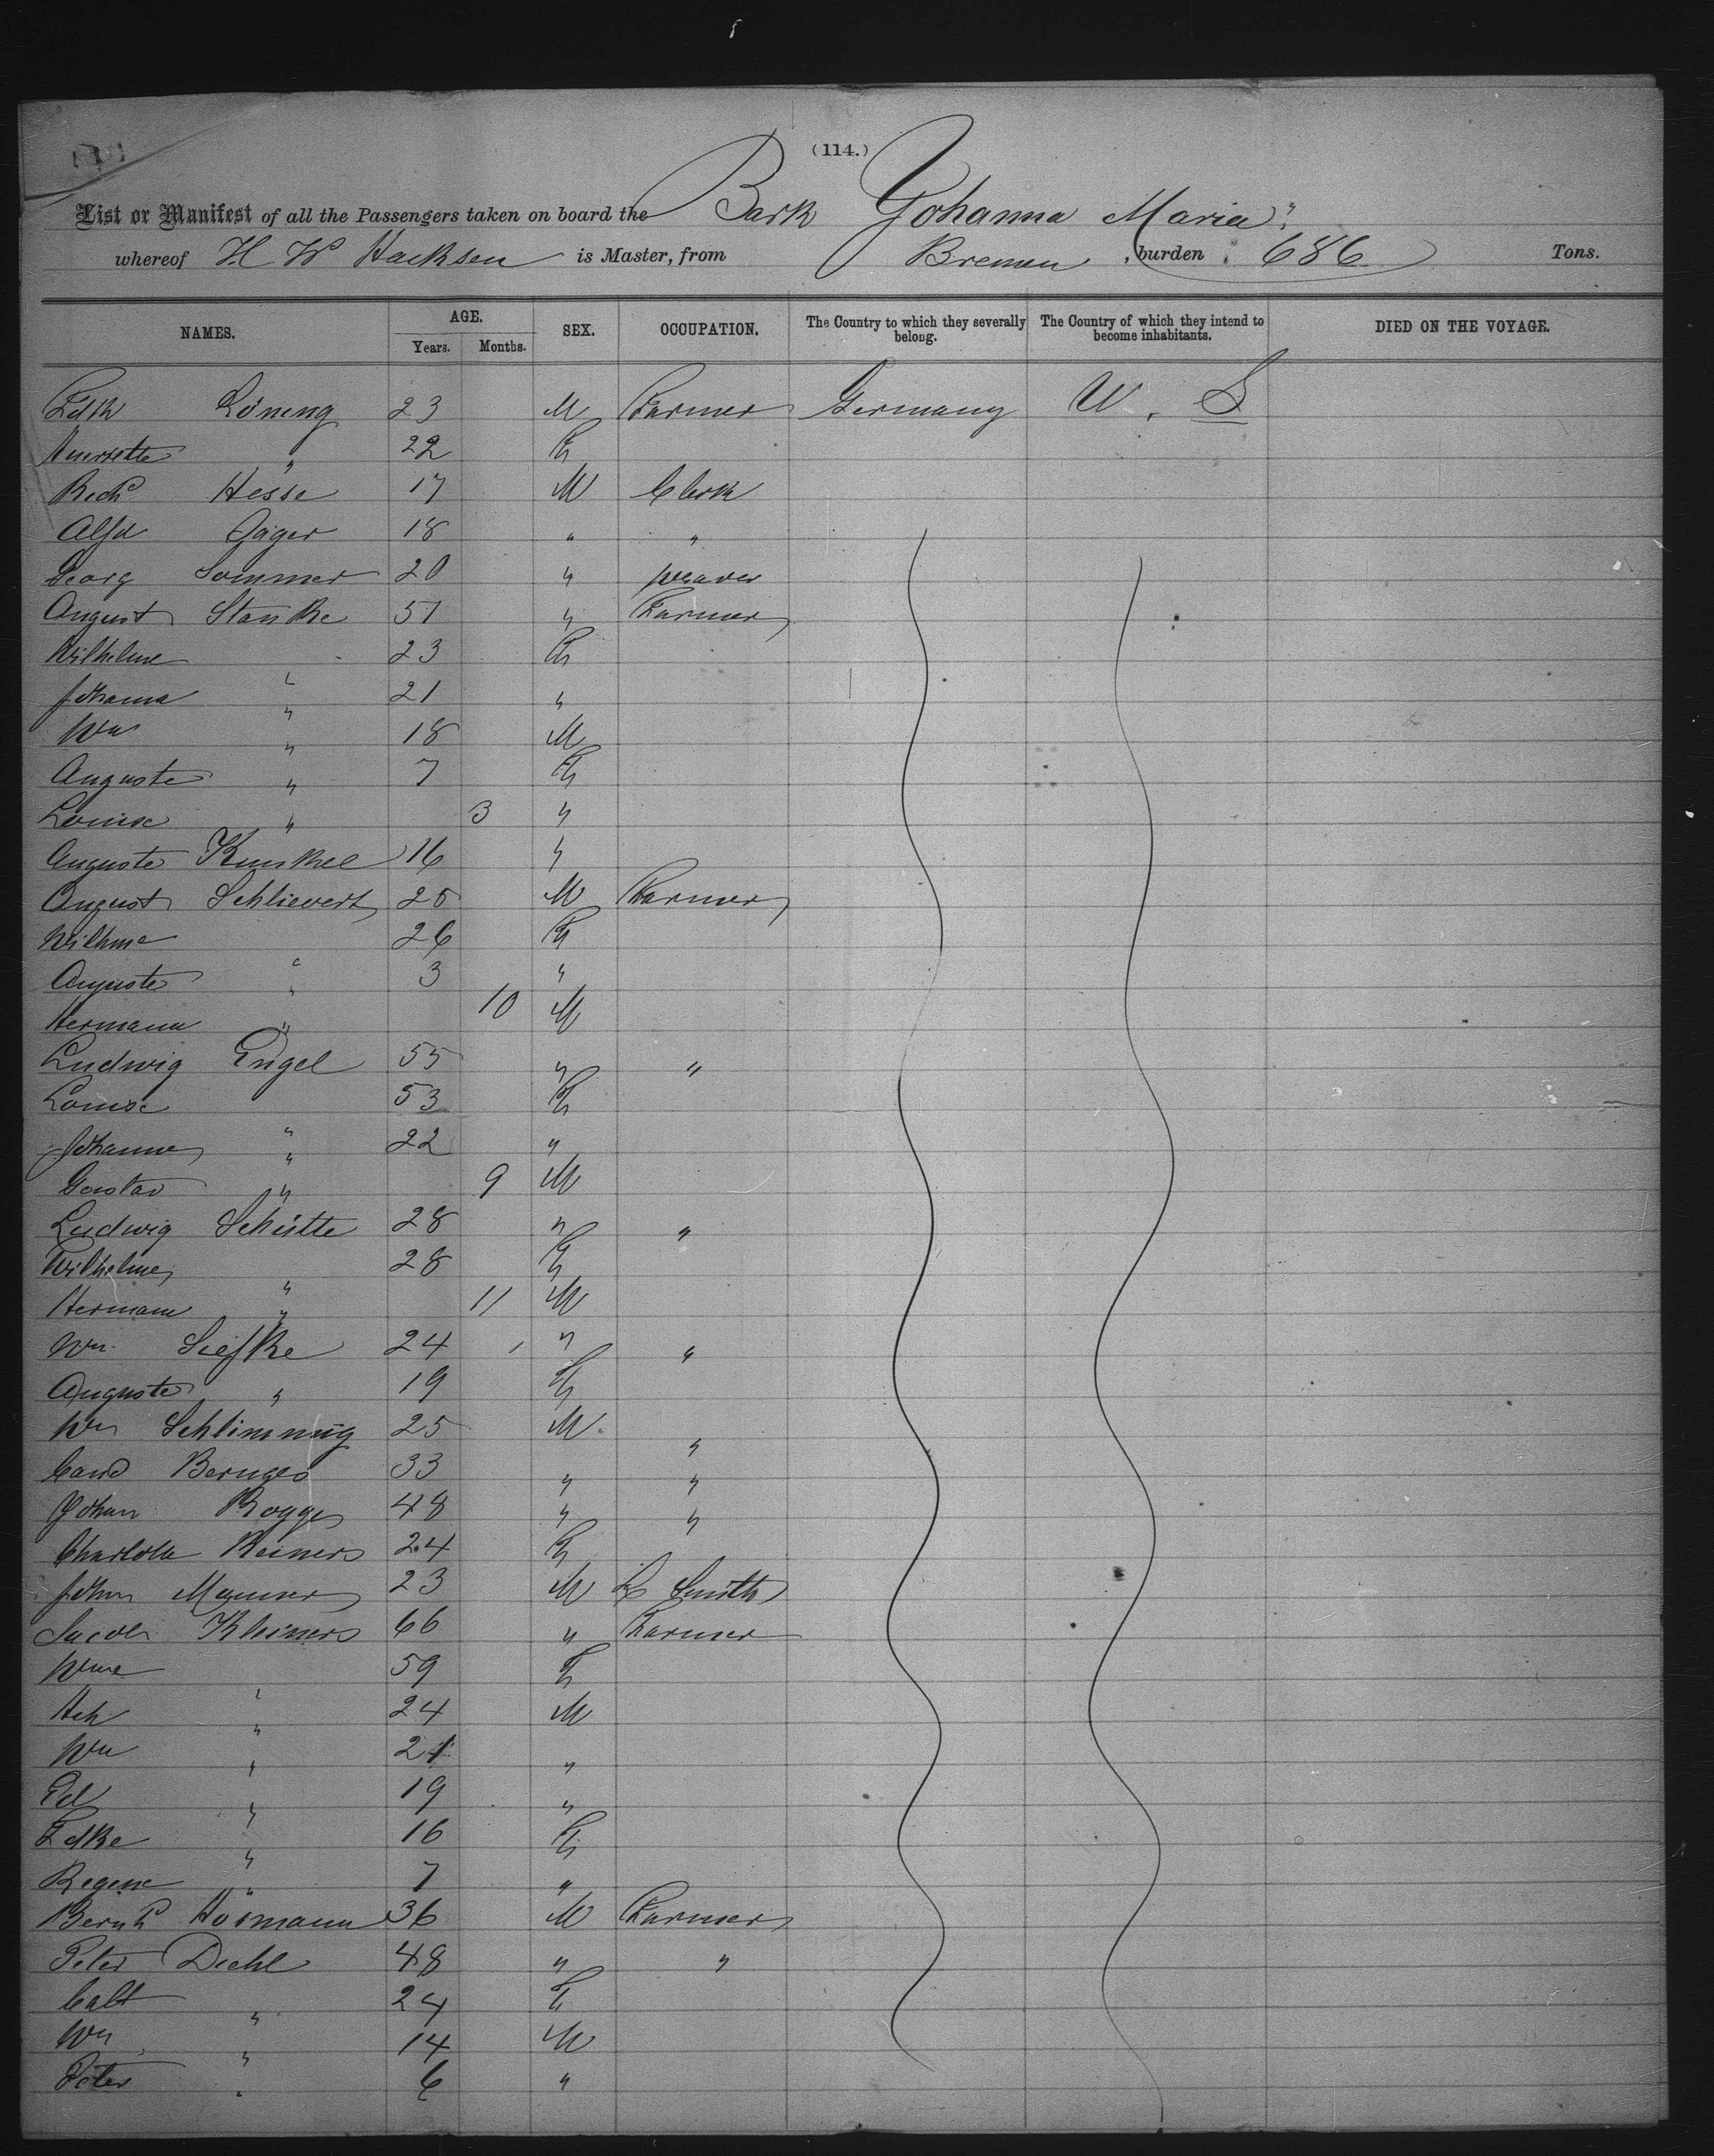 (114.)
List or Manifest of all the Passengers taken on board the Bark Johanna Maria"
whereof H W Hacksen is Master, from Bremen, burden 686 Tons.
NAMES. AGE. Years. Months. SEX. OCCUPATION. The Country to which they severally belong. The Country of which they intend to become inhabitants. DIED ON THE VOYAGE.
Löning 23 M Farmer Germany U. S
" 22 F
Rich Hesse 17 M Clerk
Alfd Jäger 18 " "
Georg Sommer 20 " Weaver
August Stanke 51 " Farmer
Wilhelme 23 F
Johanna " 21 "
Wm " 18 M
Auguste " 7 F
Louise " 3 "
Auguste Kunkel 16 "
August Schlievert 25 M Farmer
Wilhme 26 F
Auguste " 3 "
Hermann " 10 M
Ludwig Engel 55 " "
Louise 53 F
Johanne " 22 "
Gustav " 9 M
Ludwig Schütte 28 " "
Wilhelme 28 F
Hermann " 11 M
Wm Siefke 24 " "
Auguste " 19 F
Wm Schlimmig 25 M "
Bernges 33 " "
Johan Rogge 48 " "
Charlotte Reiners 24 F
John 23 M Smith
Jacob Kleiners 66 " Farmer
Wme 59 F
Hch " 24 M
Wm " 21 "
Ed " 19 "
16 F
Regine " 7 "
Bernh Hörmann 36 M Farmer
Peter Diehl 48 " "
" 24 F
Wm " 14 M
Peter " 6 "